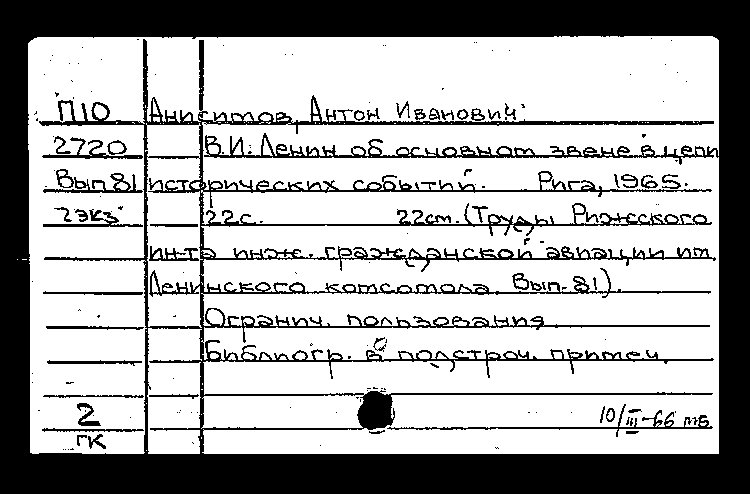 П10 Анисимов, Антон Иванович.
2720 В.И. Ленин об основном звене в цепи
Вып 81 исторических событий. Рига, 1965.
2экз. 22с. 22см. (Труды Рижского
ин-та инж. гражданской авиации им.
Ленинского комсомола. Вып. 81).
Огранич. пользования.
Библиогр. в подстроч. примеч.
2 10/III-66 мб
ГК